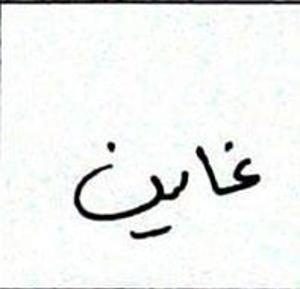 غاين